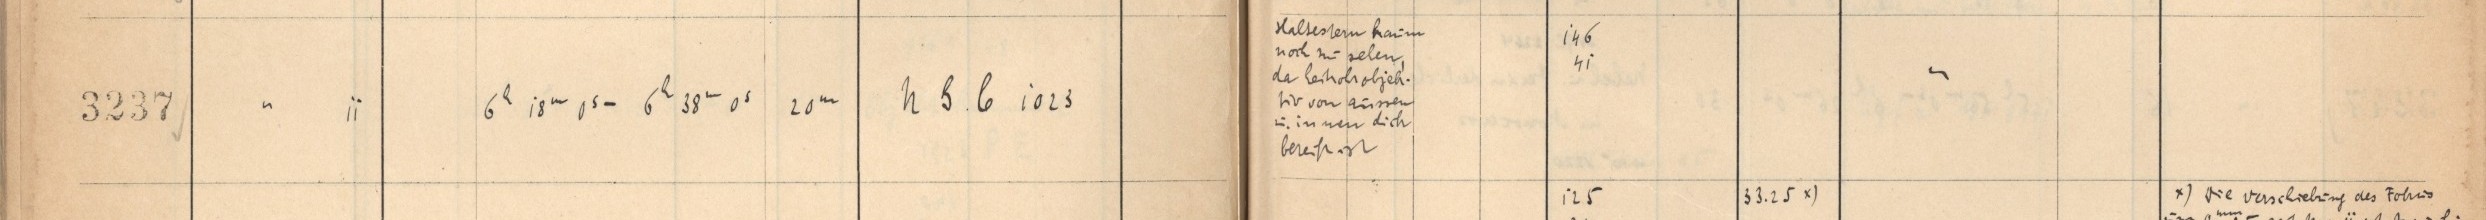 3237 " ii 6h 18m 0s – 6h 38m 0s 20m h G.C 1023
Haltestern kaum
noch zu sehen,
da Leitrohrobjek-
tiv von aussen
u. innen dick
bereift ist
146
41
"
125 33.25 x) x) Die Verschiebung des Fokus